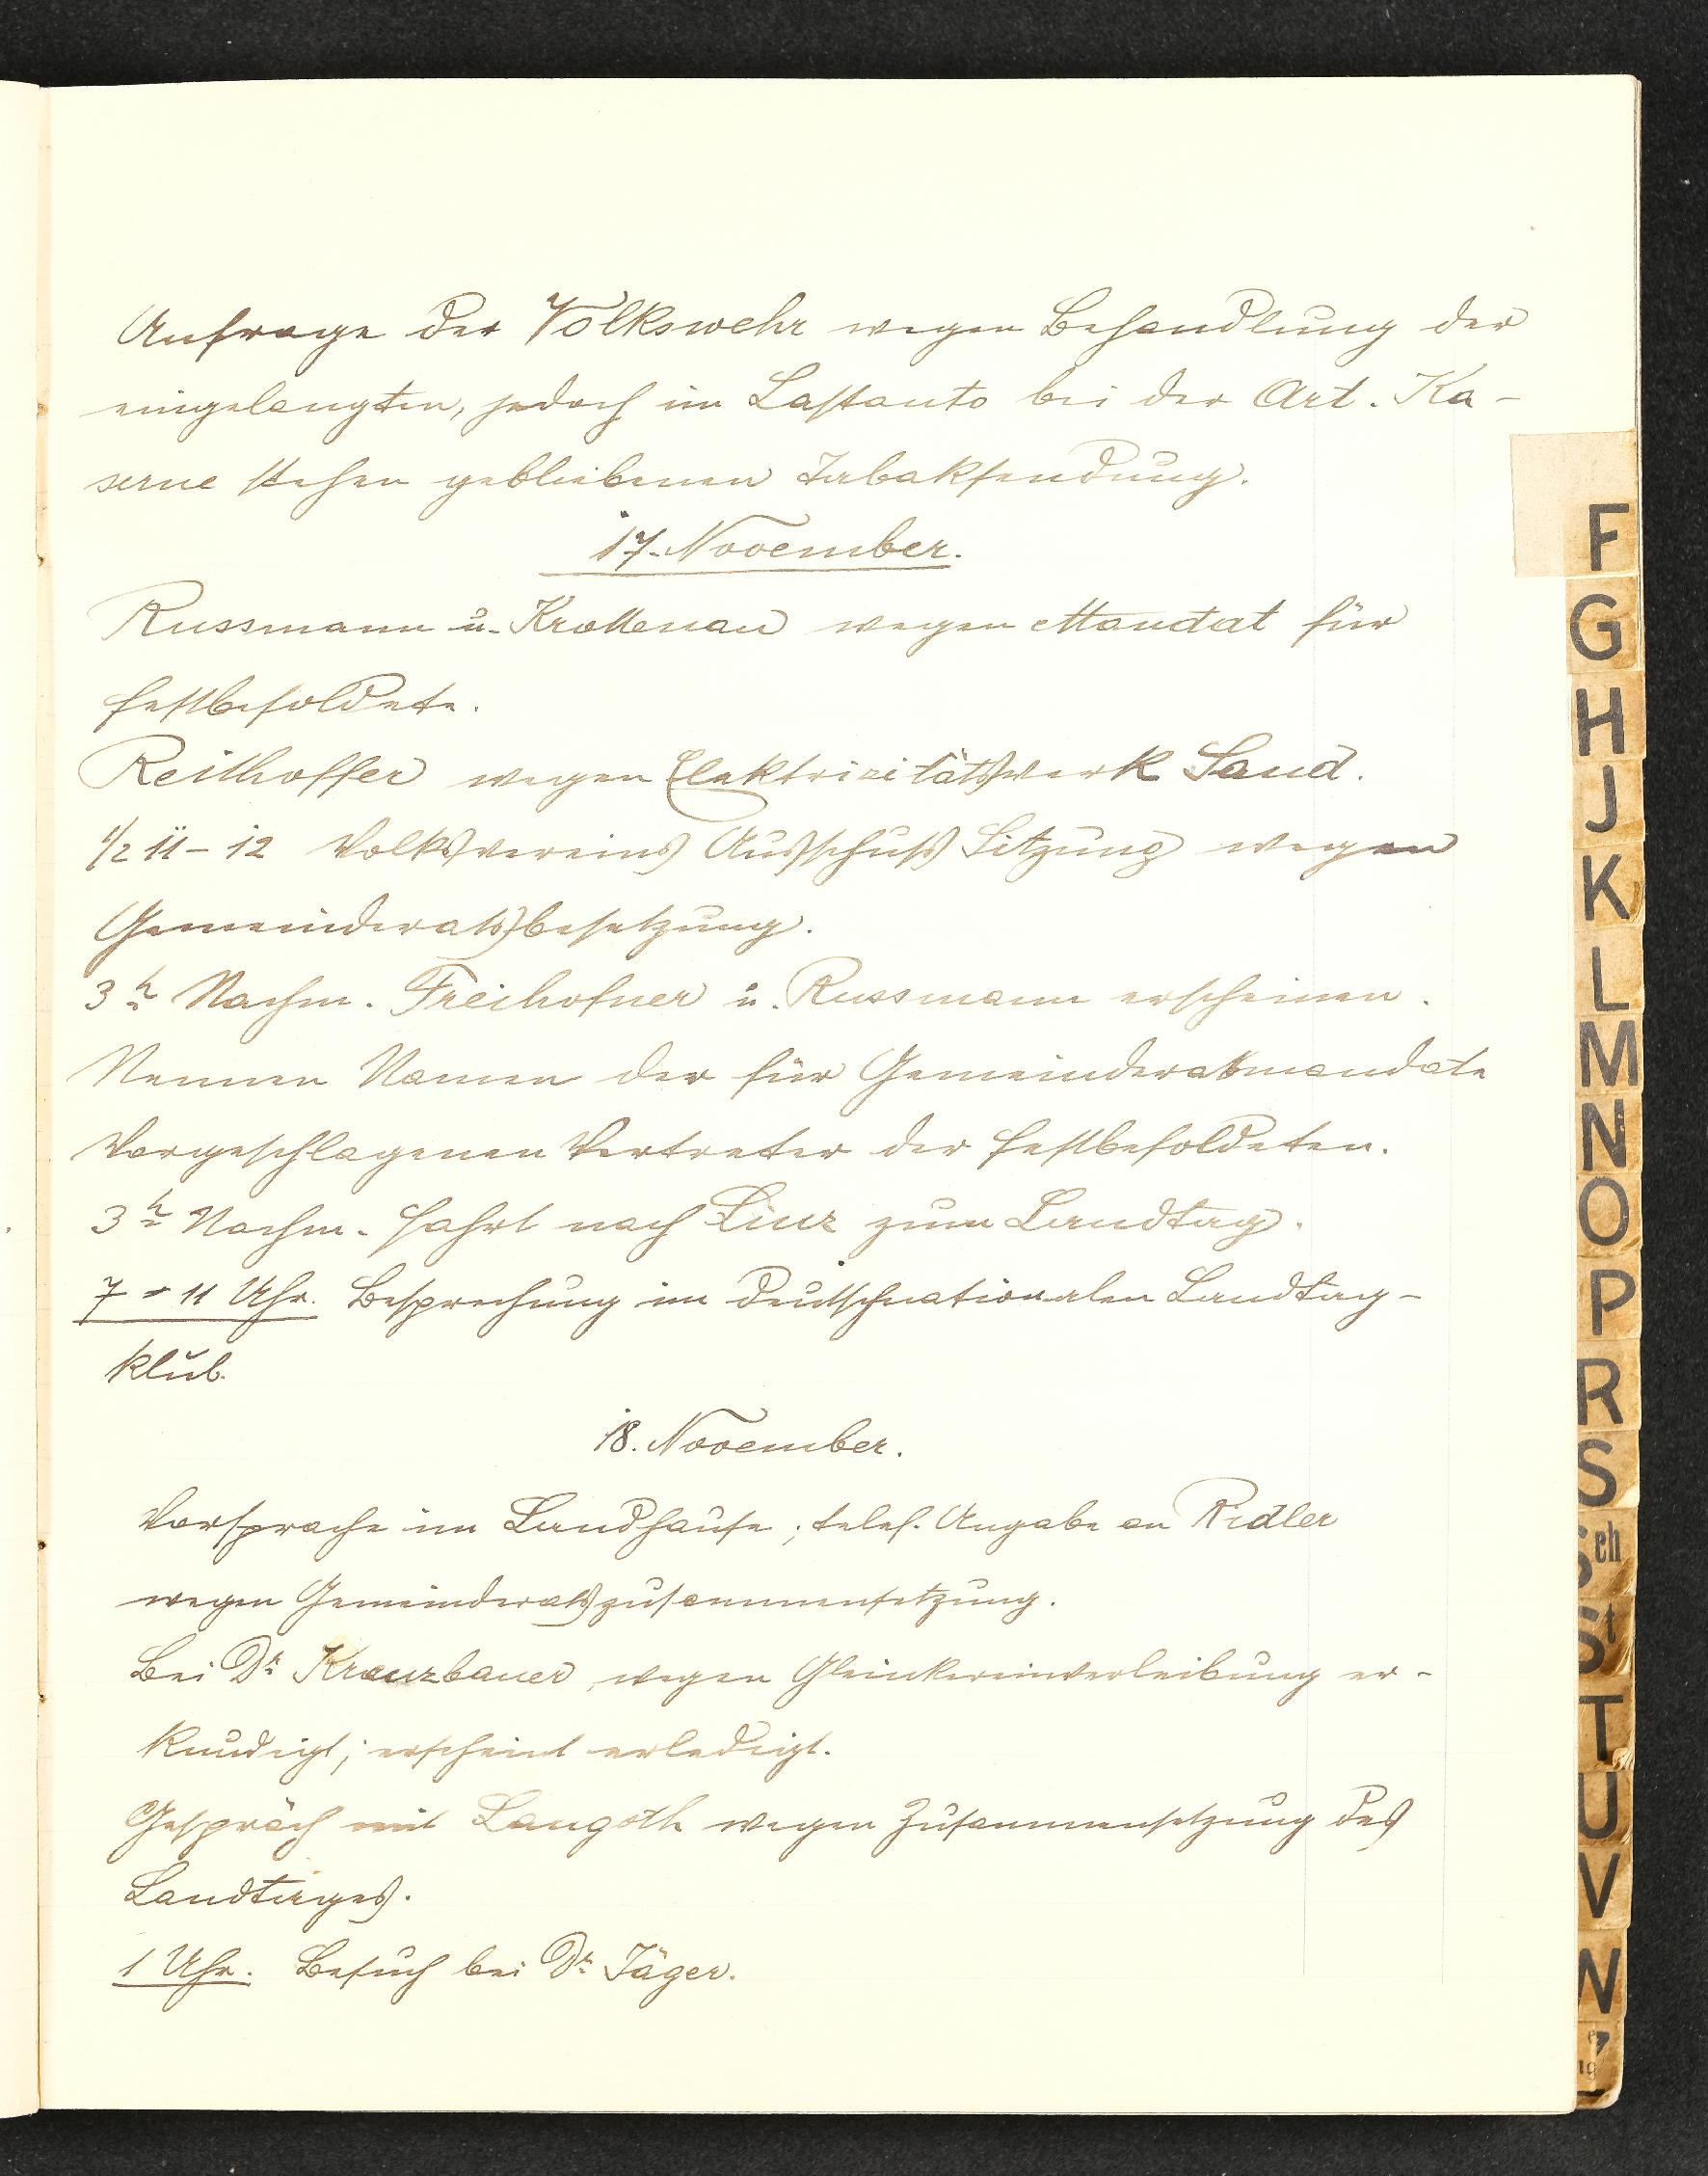 Anfrage der Volkswehr wegen Behandlung der
eingelangten, jedoch im Lastauto bei der Art. Ka-
serne stehen gebliebenen Tabaksendung.
17. November.
Russmann u. Krottenau wegen Mandat für
Festbesoldete.
Reithoffer wegen Elektrizitätswerk Sand.
1/2 11 - 12 Volksvereins Ausschuss Sitzung wegen
Gemeinderatsbesetzung.
3 h Nachm. Freihofner u. Russmann erscheinen.
Nennen Namen der für Gemeinderatsmandate
vorgeschlagenen Vertreter der Festbesoldeten.
3 h Nachm. Fahrt nach Linz zum Landtag.
7 - 11 Uhr. Besprechung im deutschnationalen Landtag-
klub.
18. November.
Vorsprache im Landhause; telef. Angabe an Ridler
wegen Gemeinderatszusammensetzung.
Bei Dr Kranzbauer, wegen Gleinkereinverleibung er-
kundigt; erscheint erledigt.
Gespräch mit Langoth wegen Zusammensetzung des
Landtages.
1 Uhr. Besuch bei Dr Jäger.
F
G
H
J
K
L
M
N
O
P
R
S
Sch
St
T
U
V
W